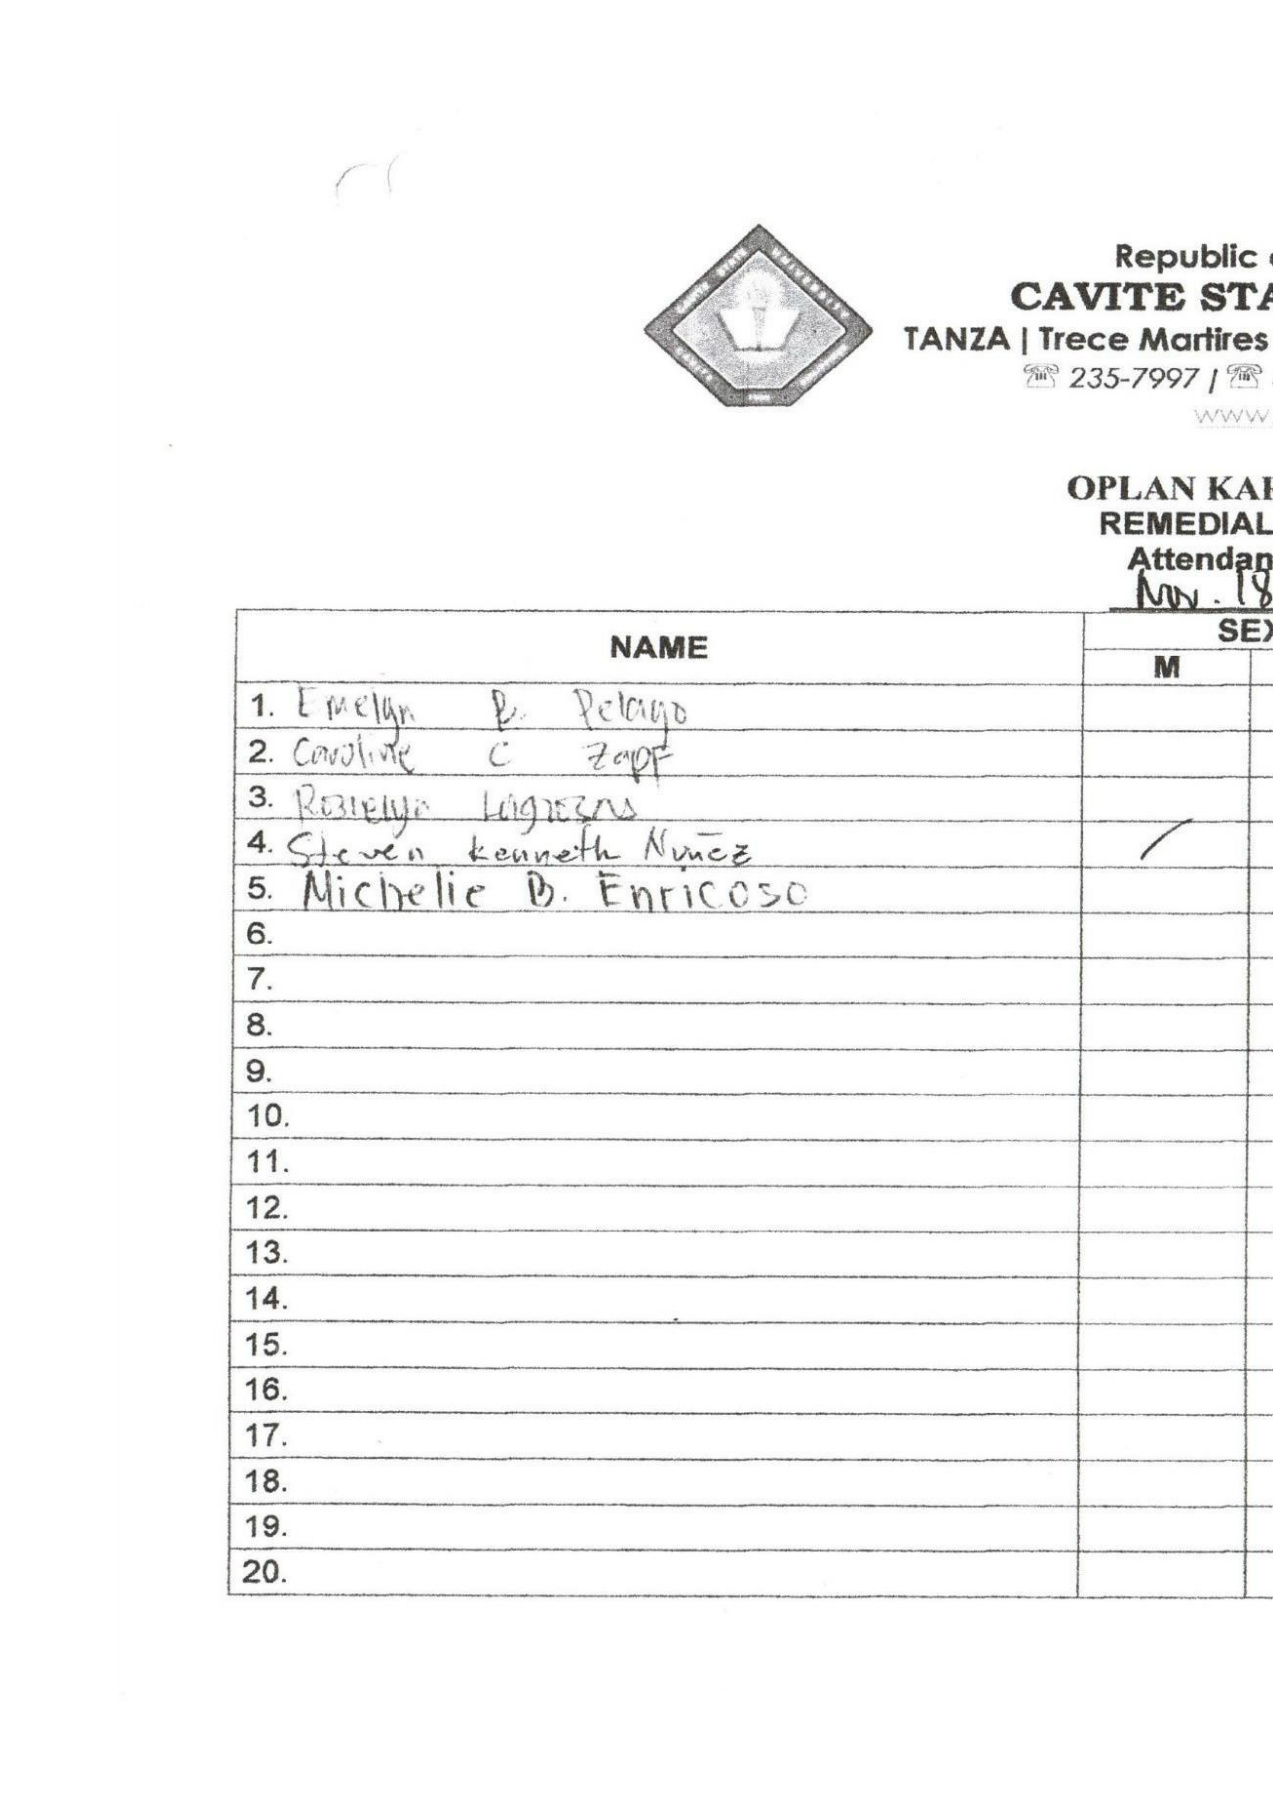 Republic
CAVITE STA
TANZA | Trece Martires
235-7997 /
www
OPLAN KA
REMEDIAL
Attendan
Nov. 18
NAME
SEX
M
1. Emelyn B. Pelayo
2. Caroline C Zapf
3. Robielyn
4. Steven Kenneth Nuñez
5. Michelle B. Enricoso
6.
7.
8.
9.
10.
11.
12.
13.
14.
15.
16.
17.
18.
19.
20.